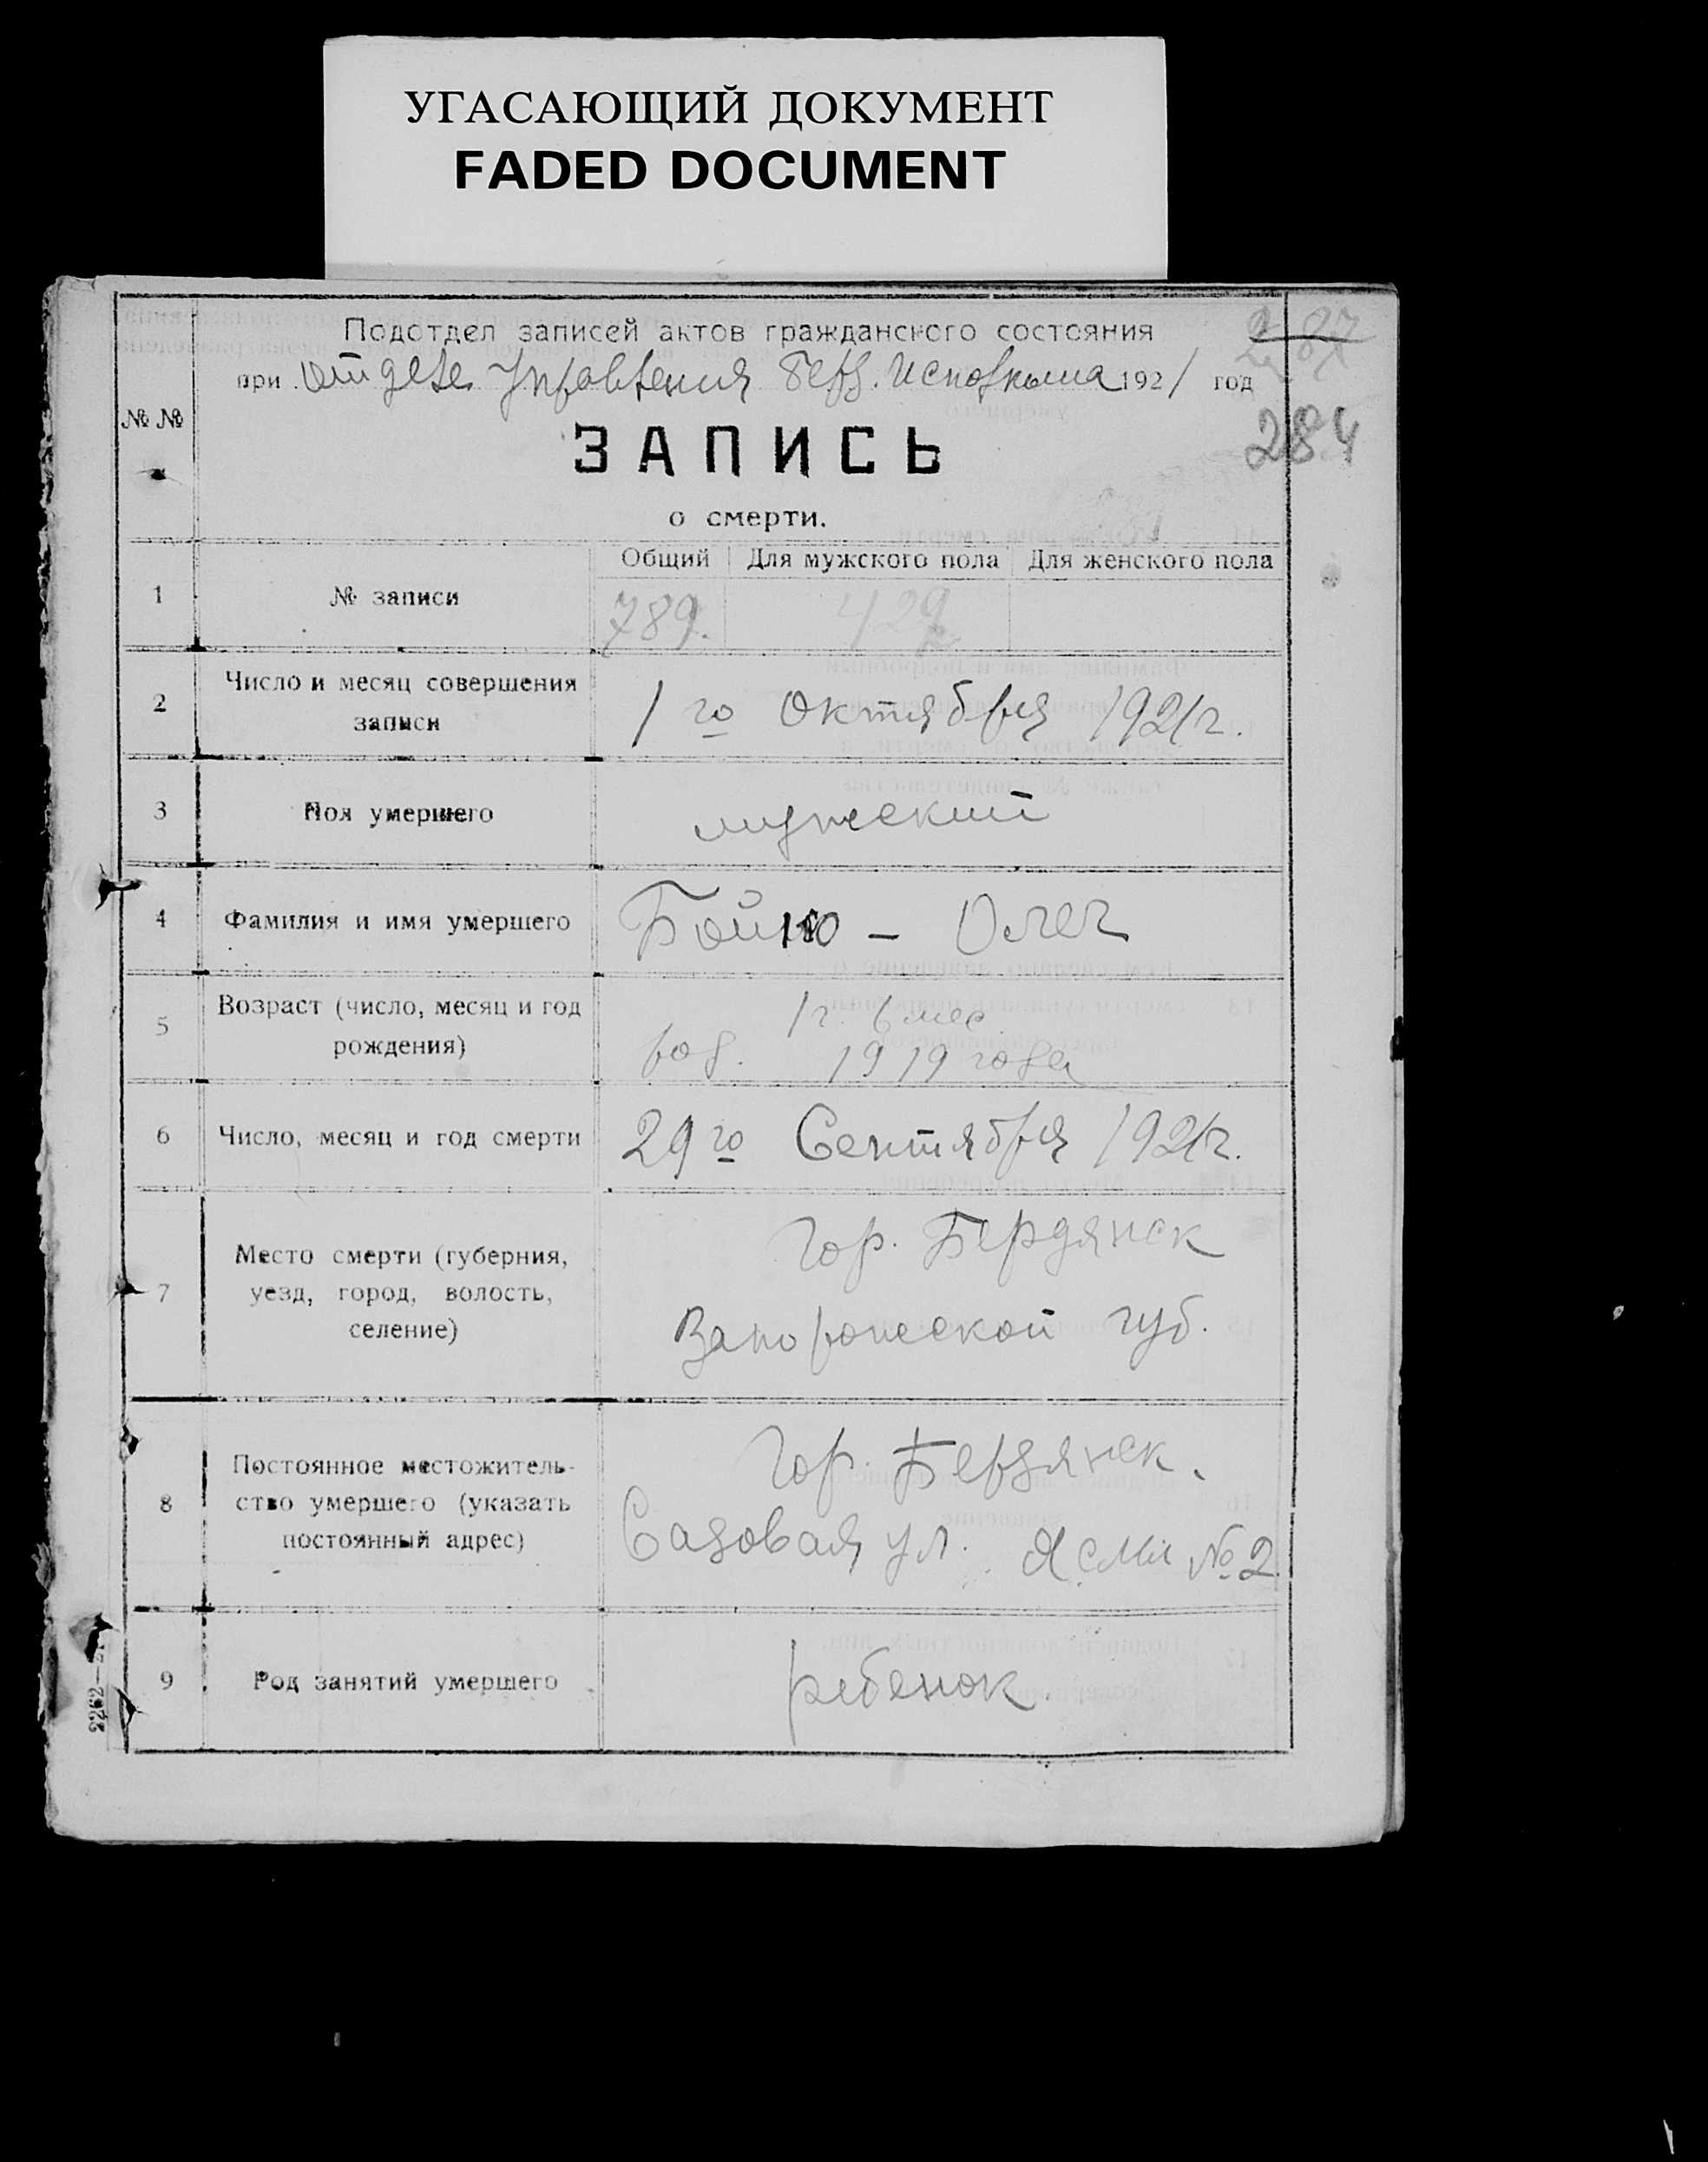 УГАСАЮЩИЙ ДОКУМЕНТ
FADED DOCUMENT
Подотдел записей актов гражданского состояния
при отделе Управления Берд. Исполкома 1921 год
284
№ №
ЗАПИСЬ
о смерти.
Общий Для мужского пола Для женского пола
1 № записи 789. 429
2 Число и месяц совершения
записи
1го Октября 1921г.
3 Пол умершего мужеский
4 Фамилия и имя умершего Бойко – Олег
5 Возраст (число, месяц и год
рождения)
1г. 6 мес.
род. 1919 года
6 Число, месяц и год смерти 29го Сентября 1921г.
7 Место смерти (губерния,
уезд, город, волость,
селение)
Гор. Бердянск
Запорожеской губ.
8 Постоянное местожитель-
ство умершего (указать
постоянный адрес)
Гор. Бердянск.
Садовая ул. Ясли № 2
9 Род занятий умершего ребенок.
2262